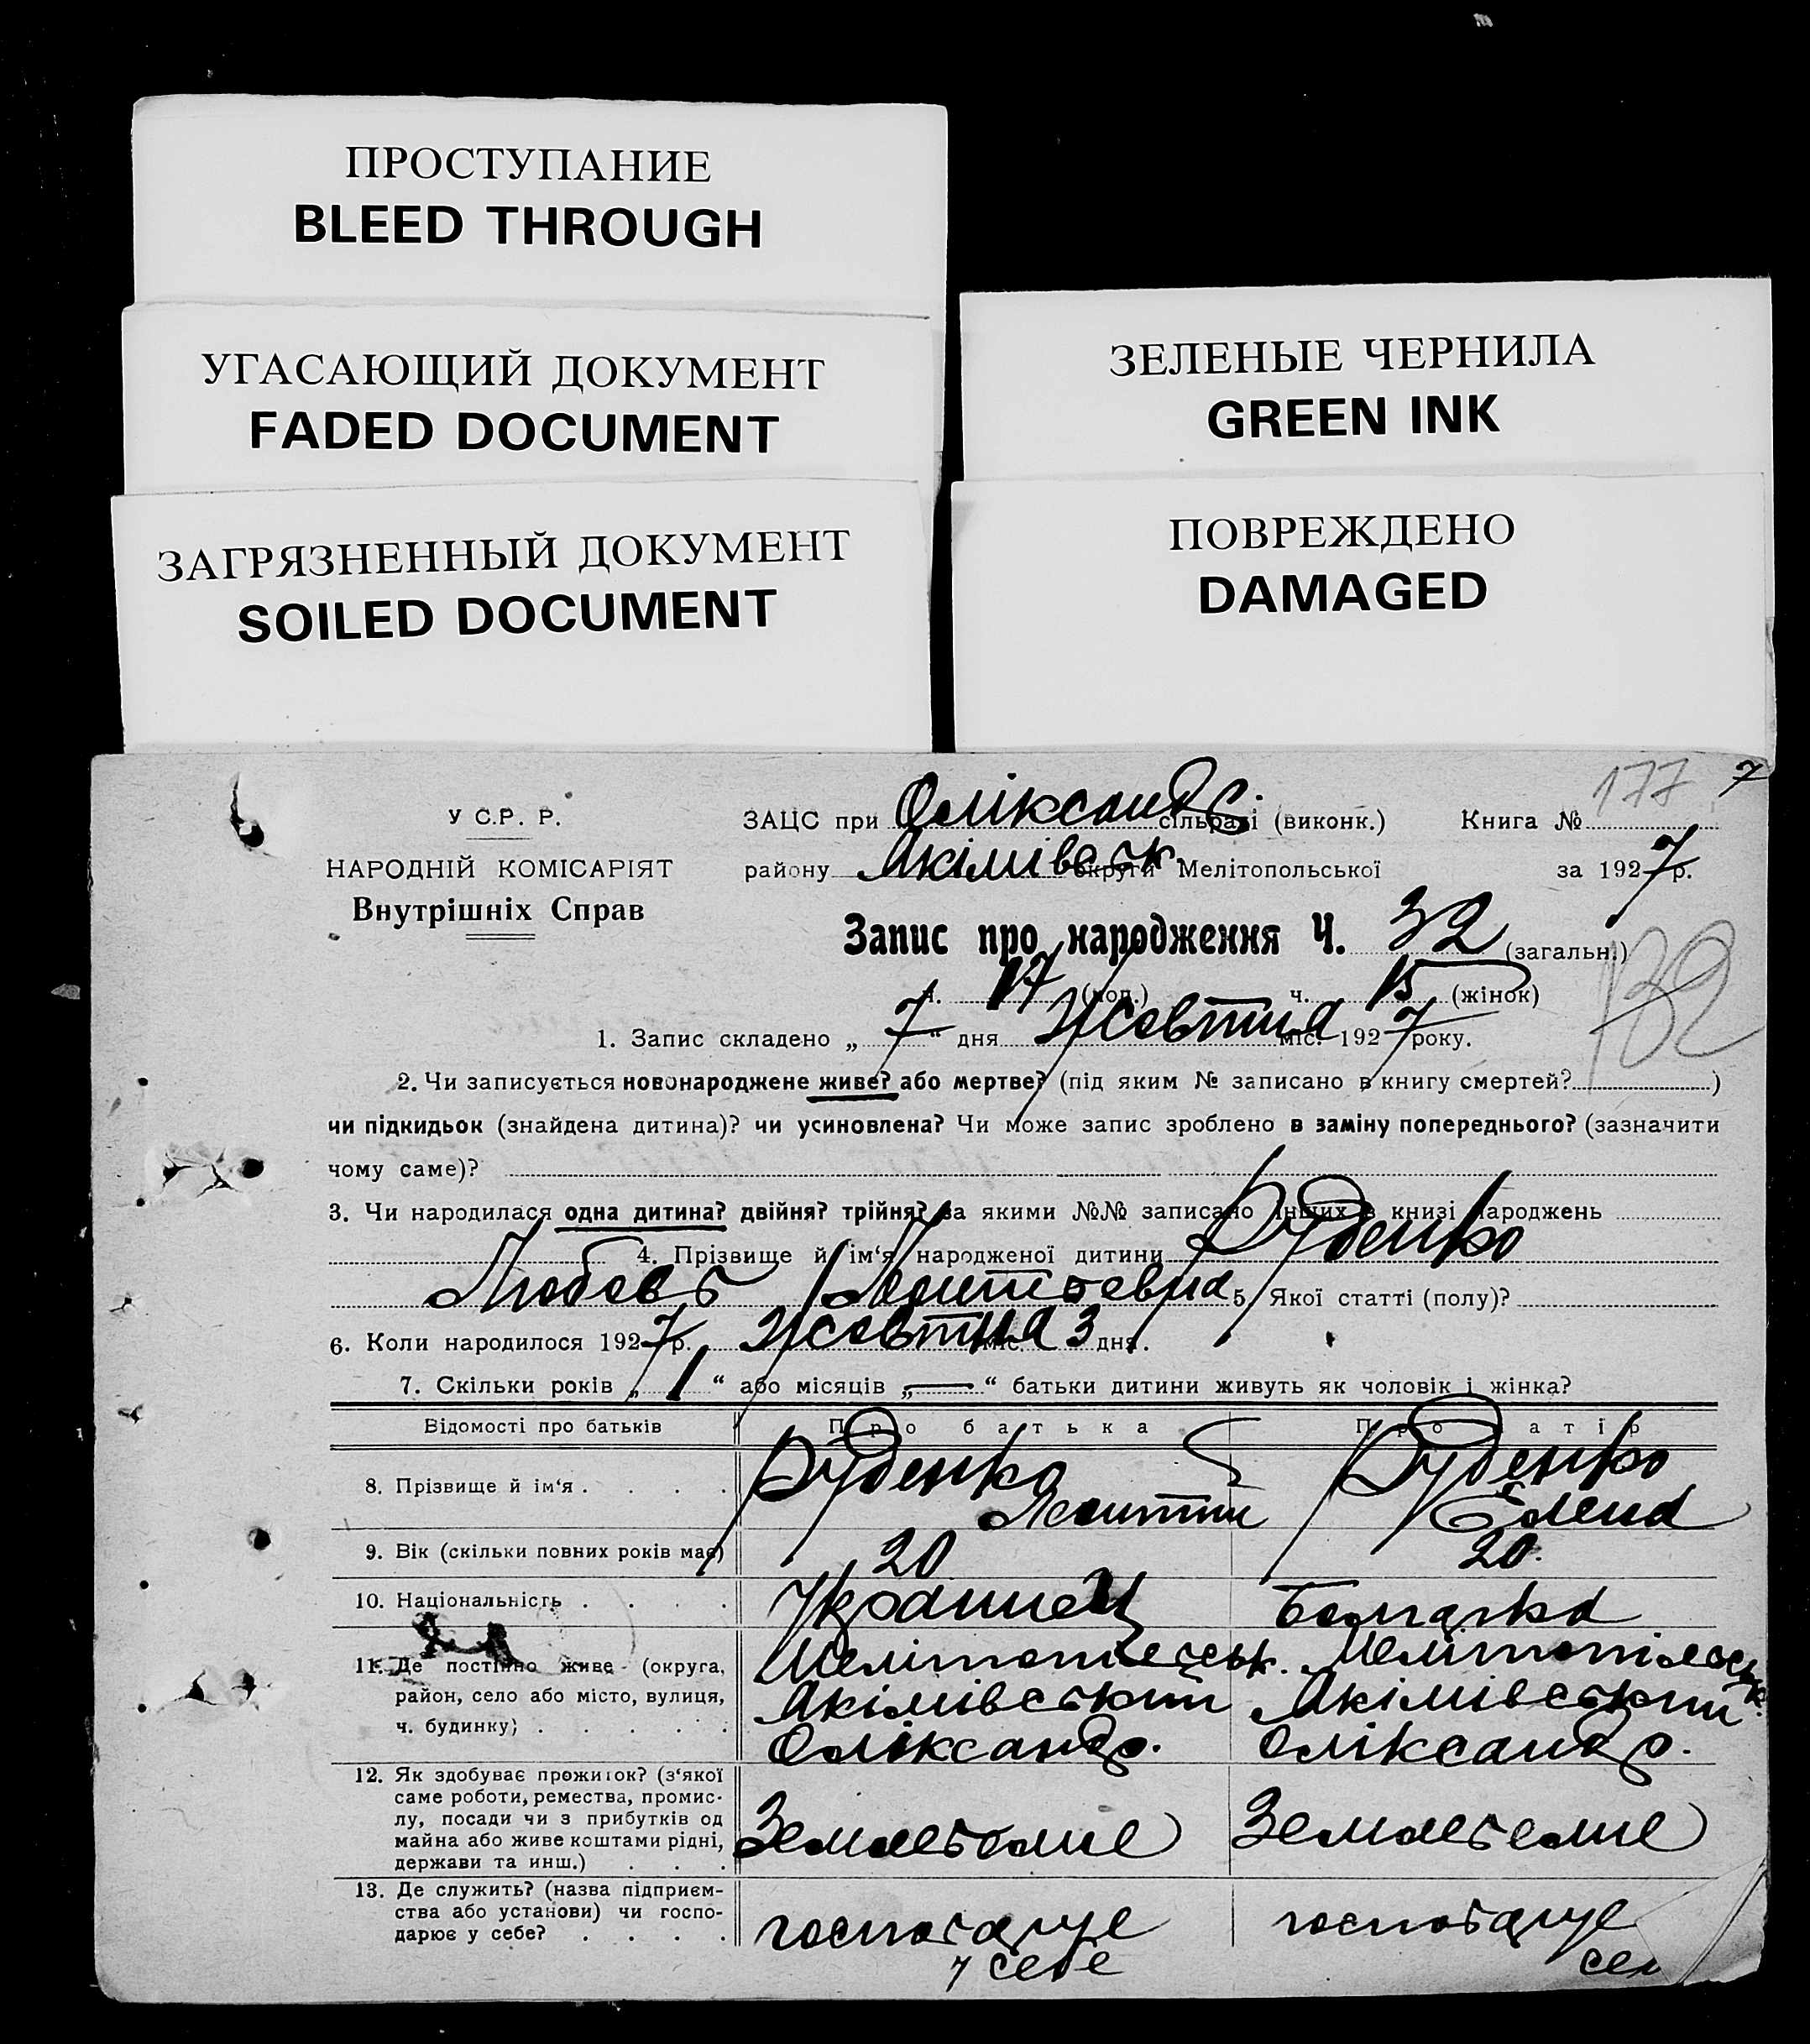 ПРОСТУПАНИЕ
BLEED THROUGH
УГАСАЮЩИЙ ДОКУМЕНТ
FADED DOCUMENT
ЗАГРЯЗНЕННЫЙ ДОКУМЕНТ
SOILED DOCUMENT
ЗЕЛЕНЫЕ ЧЕРНИЛА
GREEN INK
ПОВРЕЖДЕНО
DAMAGED
177 7
У С.Р. Р.
НАРОДНІЙ КОМІСАРІЯТ
Внутрішніх Справ
ЗАЦС при Оліксандр сільраді (виконк.) Книга №
району Якімівськ округи Мелітопольської за 1927 р.
Запис про народження Ч. 32 (загальн.)
ч. 17 (чол.) ч. 15 (жінок)
132
1. Запис складено „ 7 “ дня Жовтня міс. 1927 року.
2. Чи записується новонароджене живе? або мертве? (під яким № записано в книгу смертей? )
чи підкидьок (знайдена дитина)? чи усиновлена? Чи може запис зроблено в заміну попереднього? (зазначити
чому саме)?
3. Чи народилася одна дитина? двійня? трійня? за якими №№ записано інших в книзі народжень
4. Прізвище й ім‘я народженої дитини Руденко
Любовь 5. Якої статті (полу)?
6. Коли народилося 1927 р. Жовтня міс. 3 дня.
7. Скільки років „ 1 “ або місяців „ — “ батьки дитини живуть як чоловік і жінка?
Відомості про батьків Про батька Про матір
8. Прізвище й ім‘я . . . . Руденко Руденко
Елена
9. Вік (скільки повних років має) 20 20.
10. Національність . . . . Украинец Болгарка
11. Де постійно живе (округа, район, село або місто, вулиця, ч. будинку) . . . . .
Мелітопільськ. Мелітопільськ.
Якімівський Якімівський
Оліксандр. Оліксандр.
12. Як здобуває прожиток? (з‘якої
саме роботи, ремества, промис-
лу, посади чи з прибутків од
майна або живе коштами рідні,
держави та инш.) . . .
Земледелие Земледелие
13. Де служить? (назва підприєм-
ства або установи) чи госпо-
дарює у себе? . . . .
господарує господарує
у себе